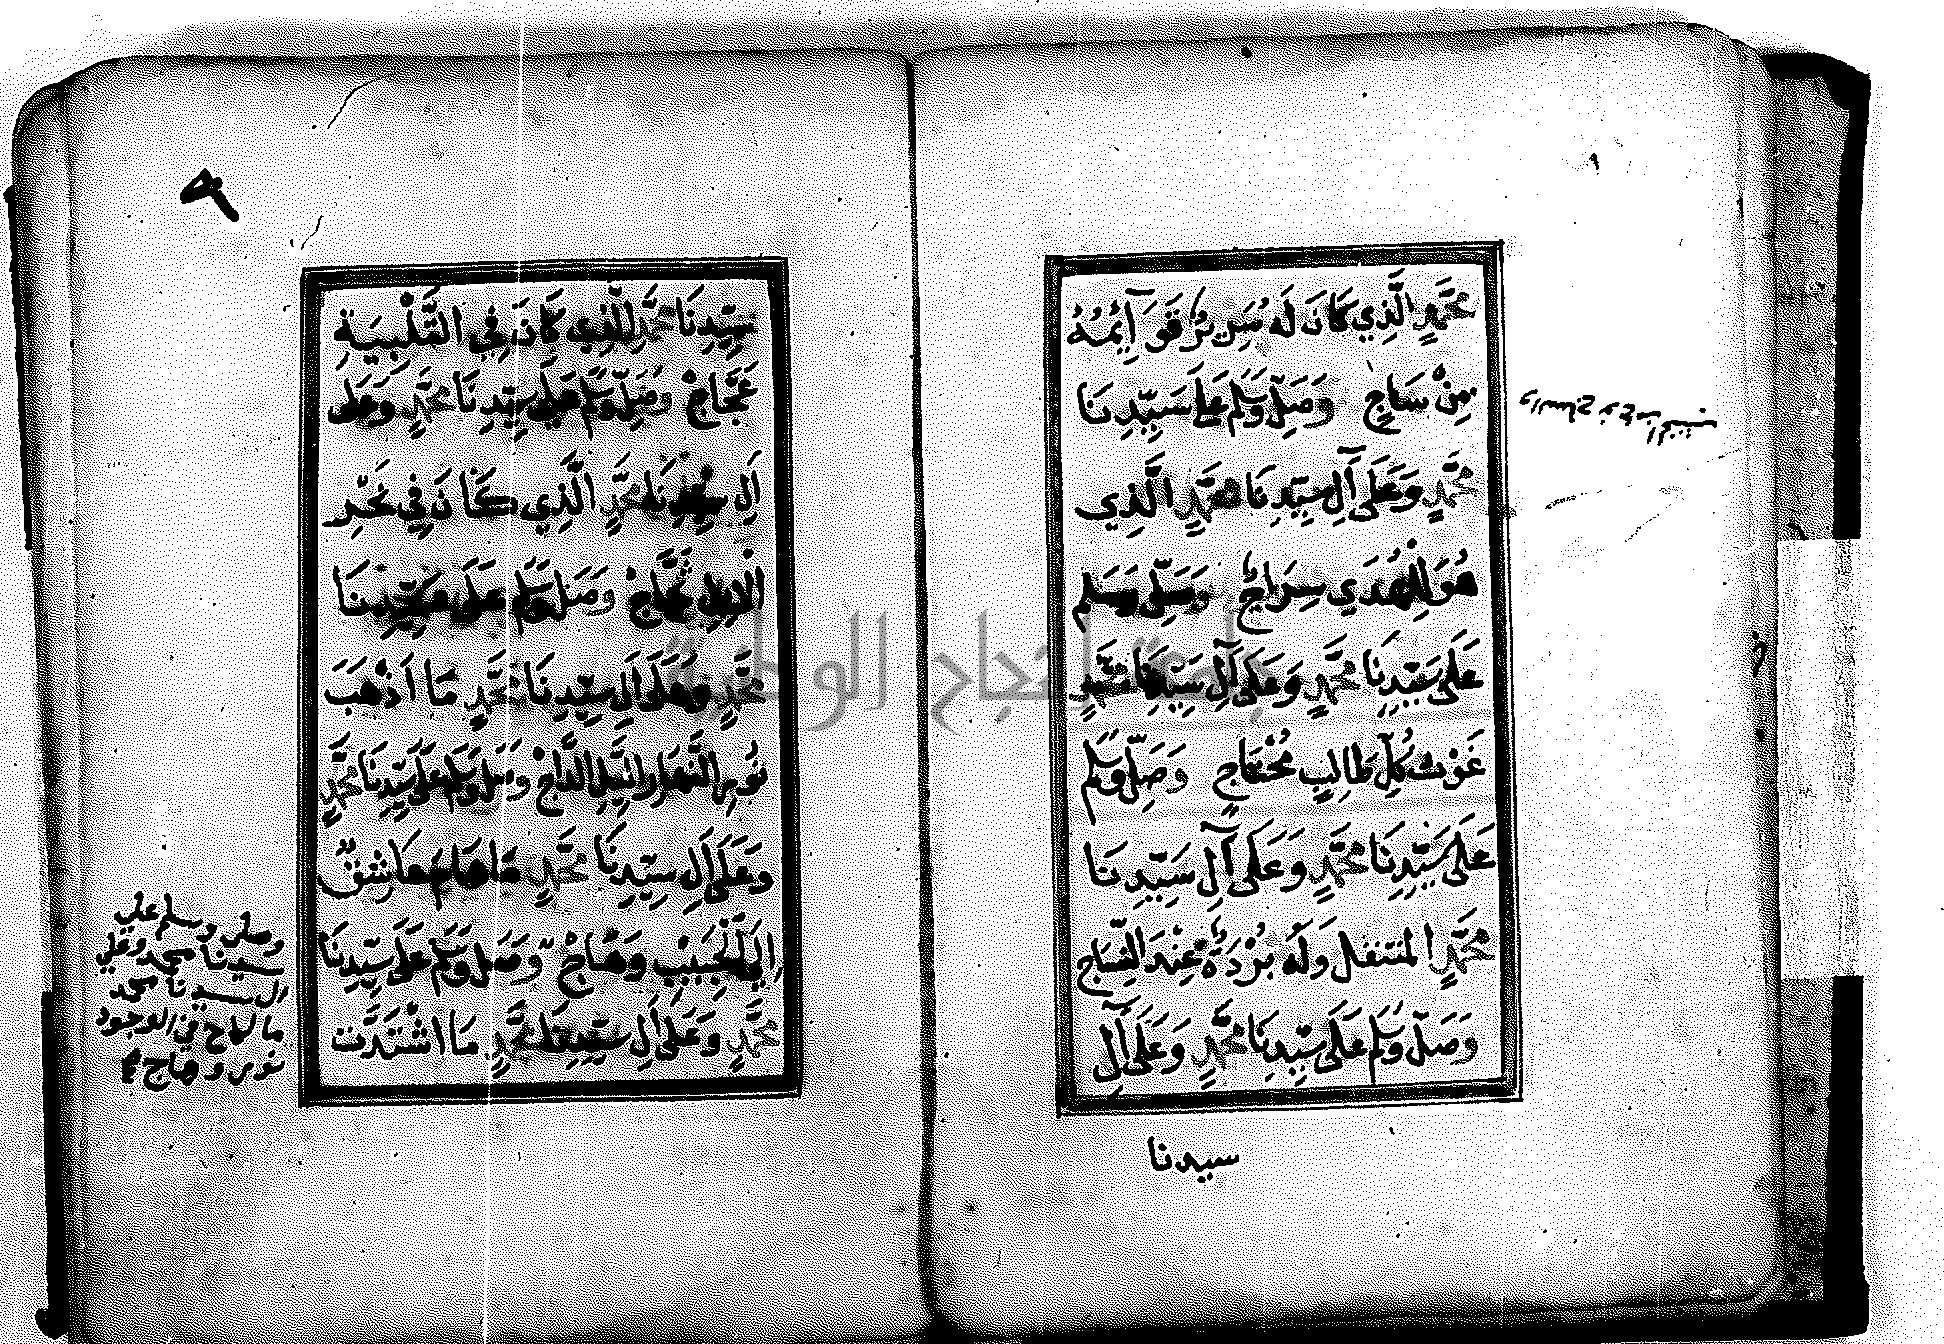 محمد الذي كان له سرير قوائمه
من ساج وصل وسلم على سيدنا
محمد وعلى آل سيدنا محمد الذي
هو للهدي سراج وصل وسلم
على سيدنا محمد وعلى آل سيدنا محمد
غوث كل طالب محتاج وصل وسلم
على سيدنا محمد وعلى آل سيدنا
محمد المتنفل وله بردة عند النساج
وصل وسلم على سيدنا محمد وعلى آل
سيدنا
سيدنا محمد الذي كان في التلبية
عجاج وصل وسلم على سيدنا محمد وعلى
ال سيدنا محمد الذي كان في نحر
الابل ثجاج وصل وسلم على سيدنا
محمد وعلى ال سيدنا محمد ما اذهب
نور النهار الليل الداج وصل وسلم على سيدنا محمد
وعلى ال سيدنا محمد ما هام عاشق
الى الحبيب وهاج وصل وسلم على سيدنا
محمد وعلى ال سيدنا محمد ما اشتدت
وصل وسلم على
سيدنا محمد وعلى
ال سيدنا محمد
ما لاح في الوجود
نور وهاج
جامعة النجاح الوطنية